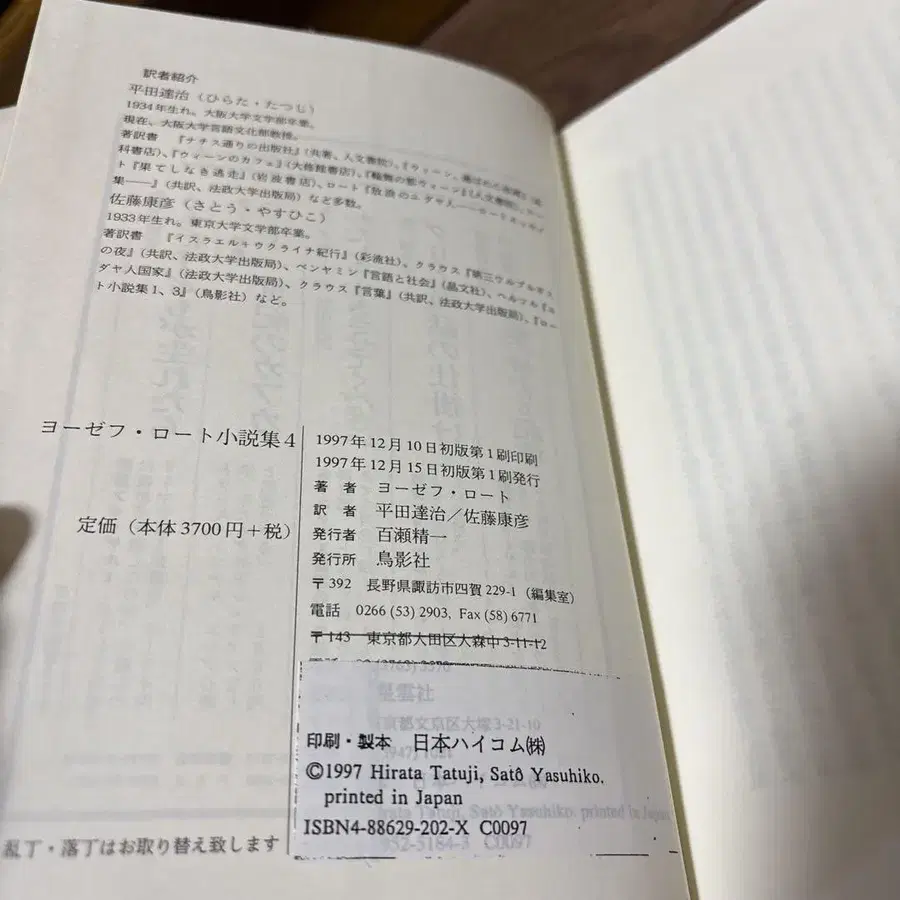 訳者紹介
平田達治（ひらた・たつじ）
1934年生れ。大阪大学文学部卒業。
現在、大阪大学言語文化部教授。
著訳書 『ナチス通りの出版社』（共著、人文書院）、『ウィーン、
科書店）、『ウィーンのカフェ』（大修館書店）、『輪舞の都ウィーン』（人文書院）、
ト『果てしなき逃走』（岩波書店）、ロート『放浪のユダヤ人――ロート
集――』（共訳、法政大学出版局）など多数。
佐藤康彦（さとう・やすひこ）
1933年生れ。東京大学文学部卒業。
著訳書 『イスラエル＝ウクライナ紀行』（彩流社）、クラウス『第三ワルプルギス
の夜』（共訳、法政大学出版局）、ベンヤミン『言語と社会』（晶文社）、ヘルツル『ユ
ダヤ人国家』（法政大学出版局）、クラウス『言葉』（共訳、法政大学出版局）、『ロー
ト小説集1、3』（鳥影社）など。
ヨーゼフ・ロート小説集4
定価（本体3700円＋税）
1997年12月10日初版第1刷印刷
1997年12月15日初版第1刷発行
著 者 ヨーゼフ・ロート
訳 者 平田達治／佐藤康彦
発行者 百瀬精一
発行所 鳥影社
〒392 長野県諏訪市四賀229-1（編集室）
電話 0266 (53) 2903, Fax (58) 6771
〒143 東京都大田区大森中3-11-12
印刷・製本 日本ハイコム㈱
©1997 Hirata Tatuji, Satô Yasuhiko.
printed in Japan
ISBN4-88629-202-X C0097
乱丁・落丁はお取り替え致します